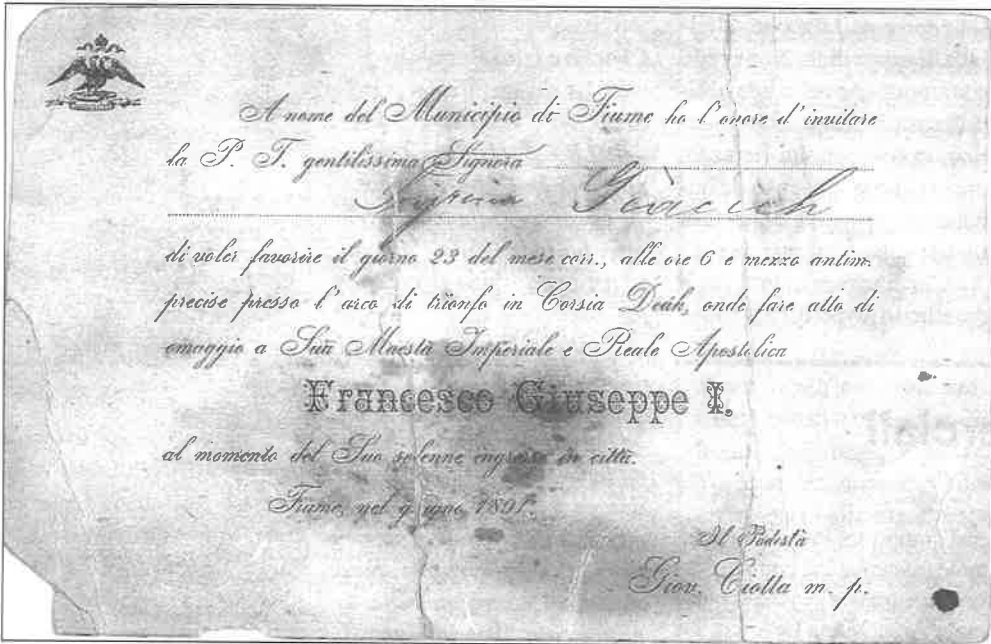 A nome del Municipio di Fiume ho l'onore d'invitare
la P. T. gentilissima Signora
di voler favorire il giorno 23 del mese corr., alle ore 6 e mezzo antim.
precise presso l'arco di trionfo in Corsia Deák, onde fare atto di
omaggio a Sua Maestà Imperiale e Reale Apostolica
Francesco Giuseppe I.
al momento del Suo solenne ingresso in città.
Fiume, nel giugno 1891.
Il Podestà
Giov. Ciotta m. p.